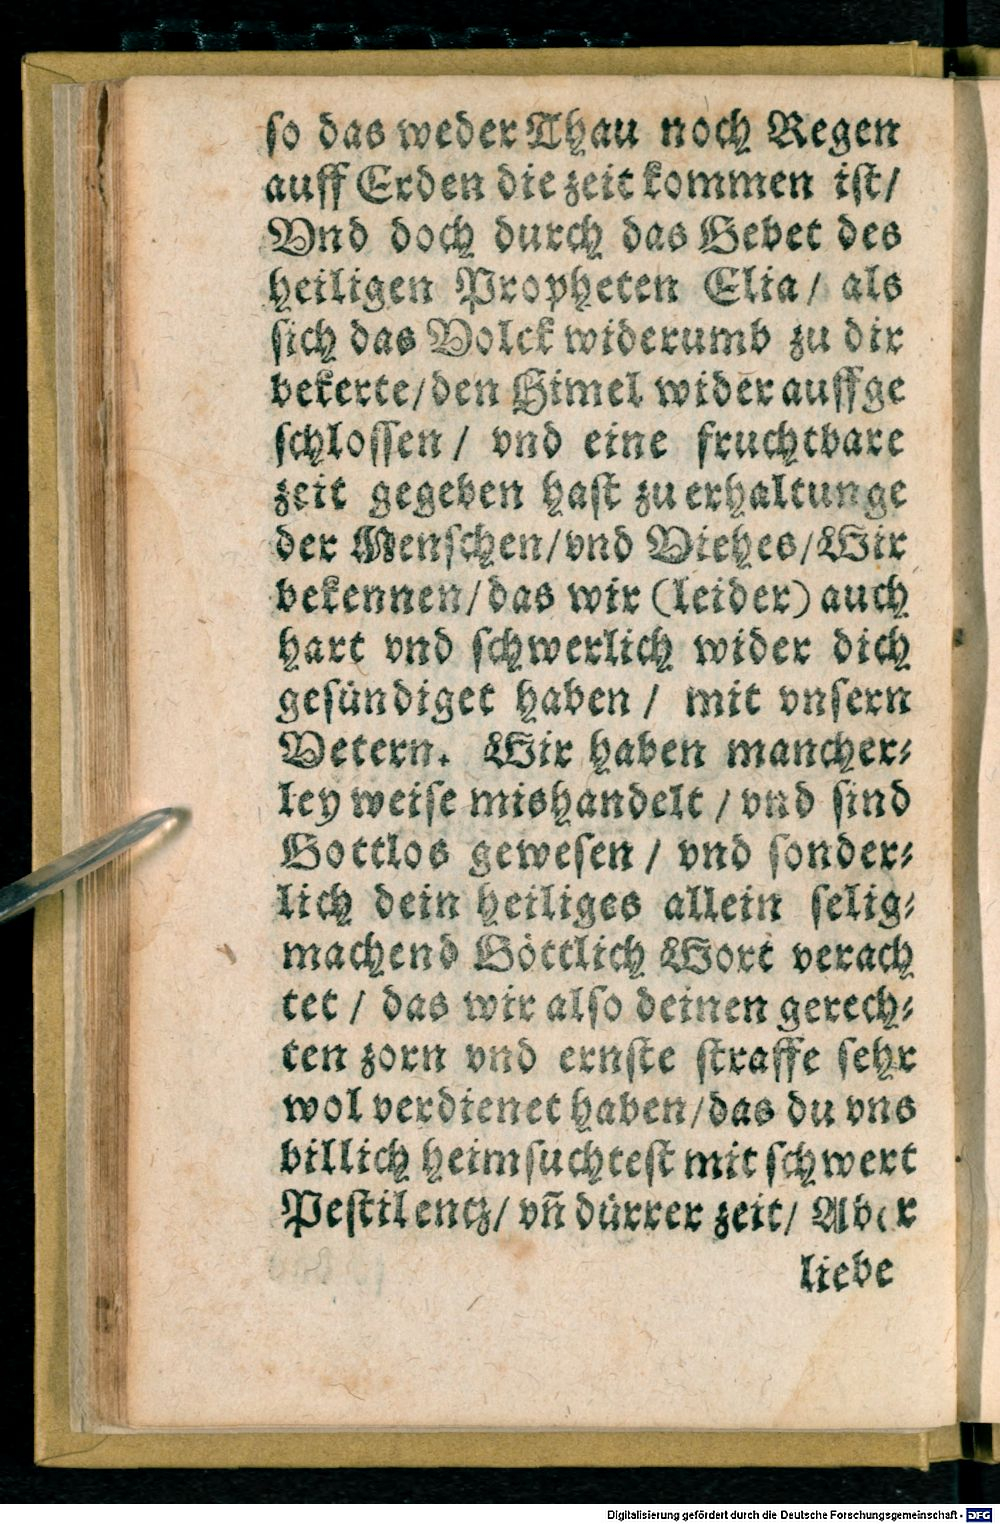 so das weder Thau noch Regen
auff Erden die zeit kommen ist/
Vnd doch durch das Gebet des
heiligen Propheten Elia/ als
sich das Volck widerumb zu dir
bekerte/den Himel wider auffge
schlossen/ vnd eine fruchtbare
zeit gegeben hast zu erhaltunge
der Menschen/vnd Viehes/Wir
bekennen/das wir (leider) auch
hart vnd schwerlich wider dich
gesündiget haben/ mit vnsern
Vetern. Wir haben mancher⸗
ley weise mishandelt/vnd sind
Gottlos gewesen/ vnd sonder⸗
lich dein heiliges allein selig⸗
machend Göttlich Wort verach
tet/ das wir also deinen gerech⸗
ten zorn vnd ernste straffe sehr
wol verdienet haben/das du vns
billich heimsuchtest mit schwert
Pestilentz/ vñ dürrer zeit/ Aber
liebe
Digitalisierung gefördert durch die Deutsche Forschungsgemeinschaft - DFG